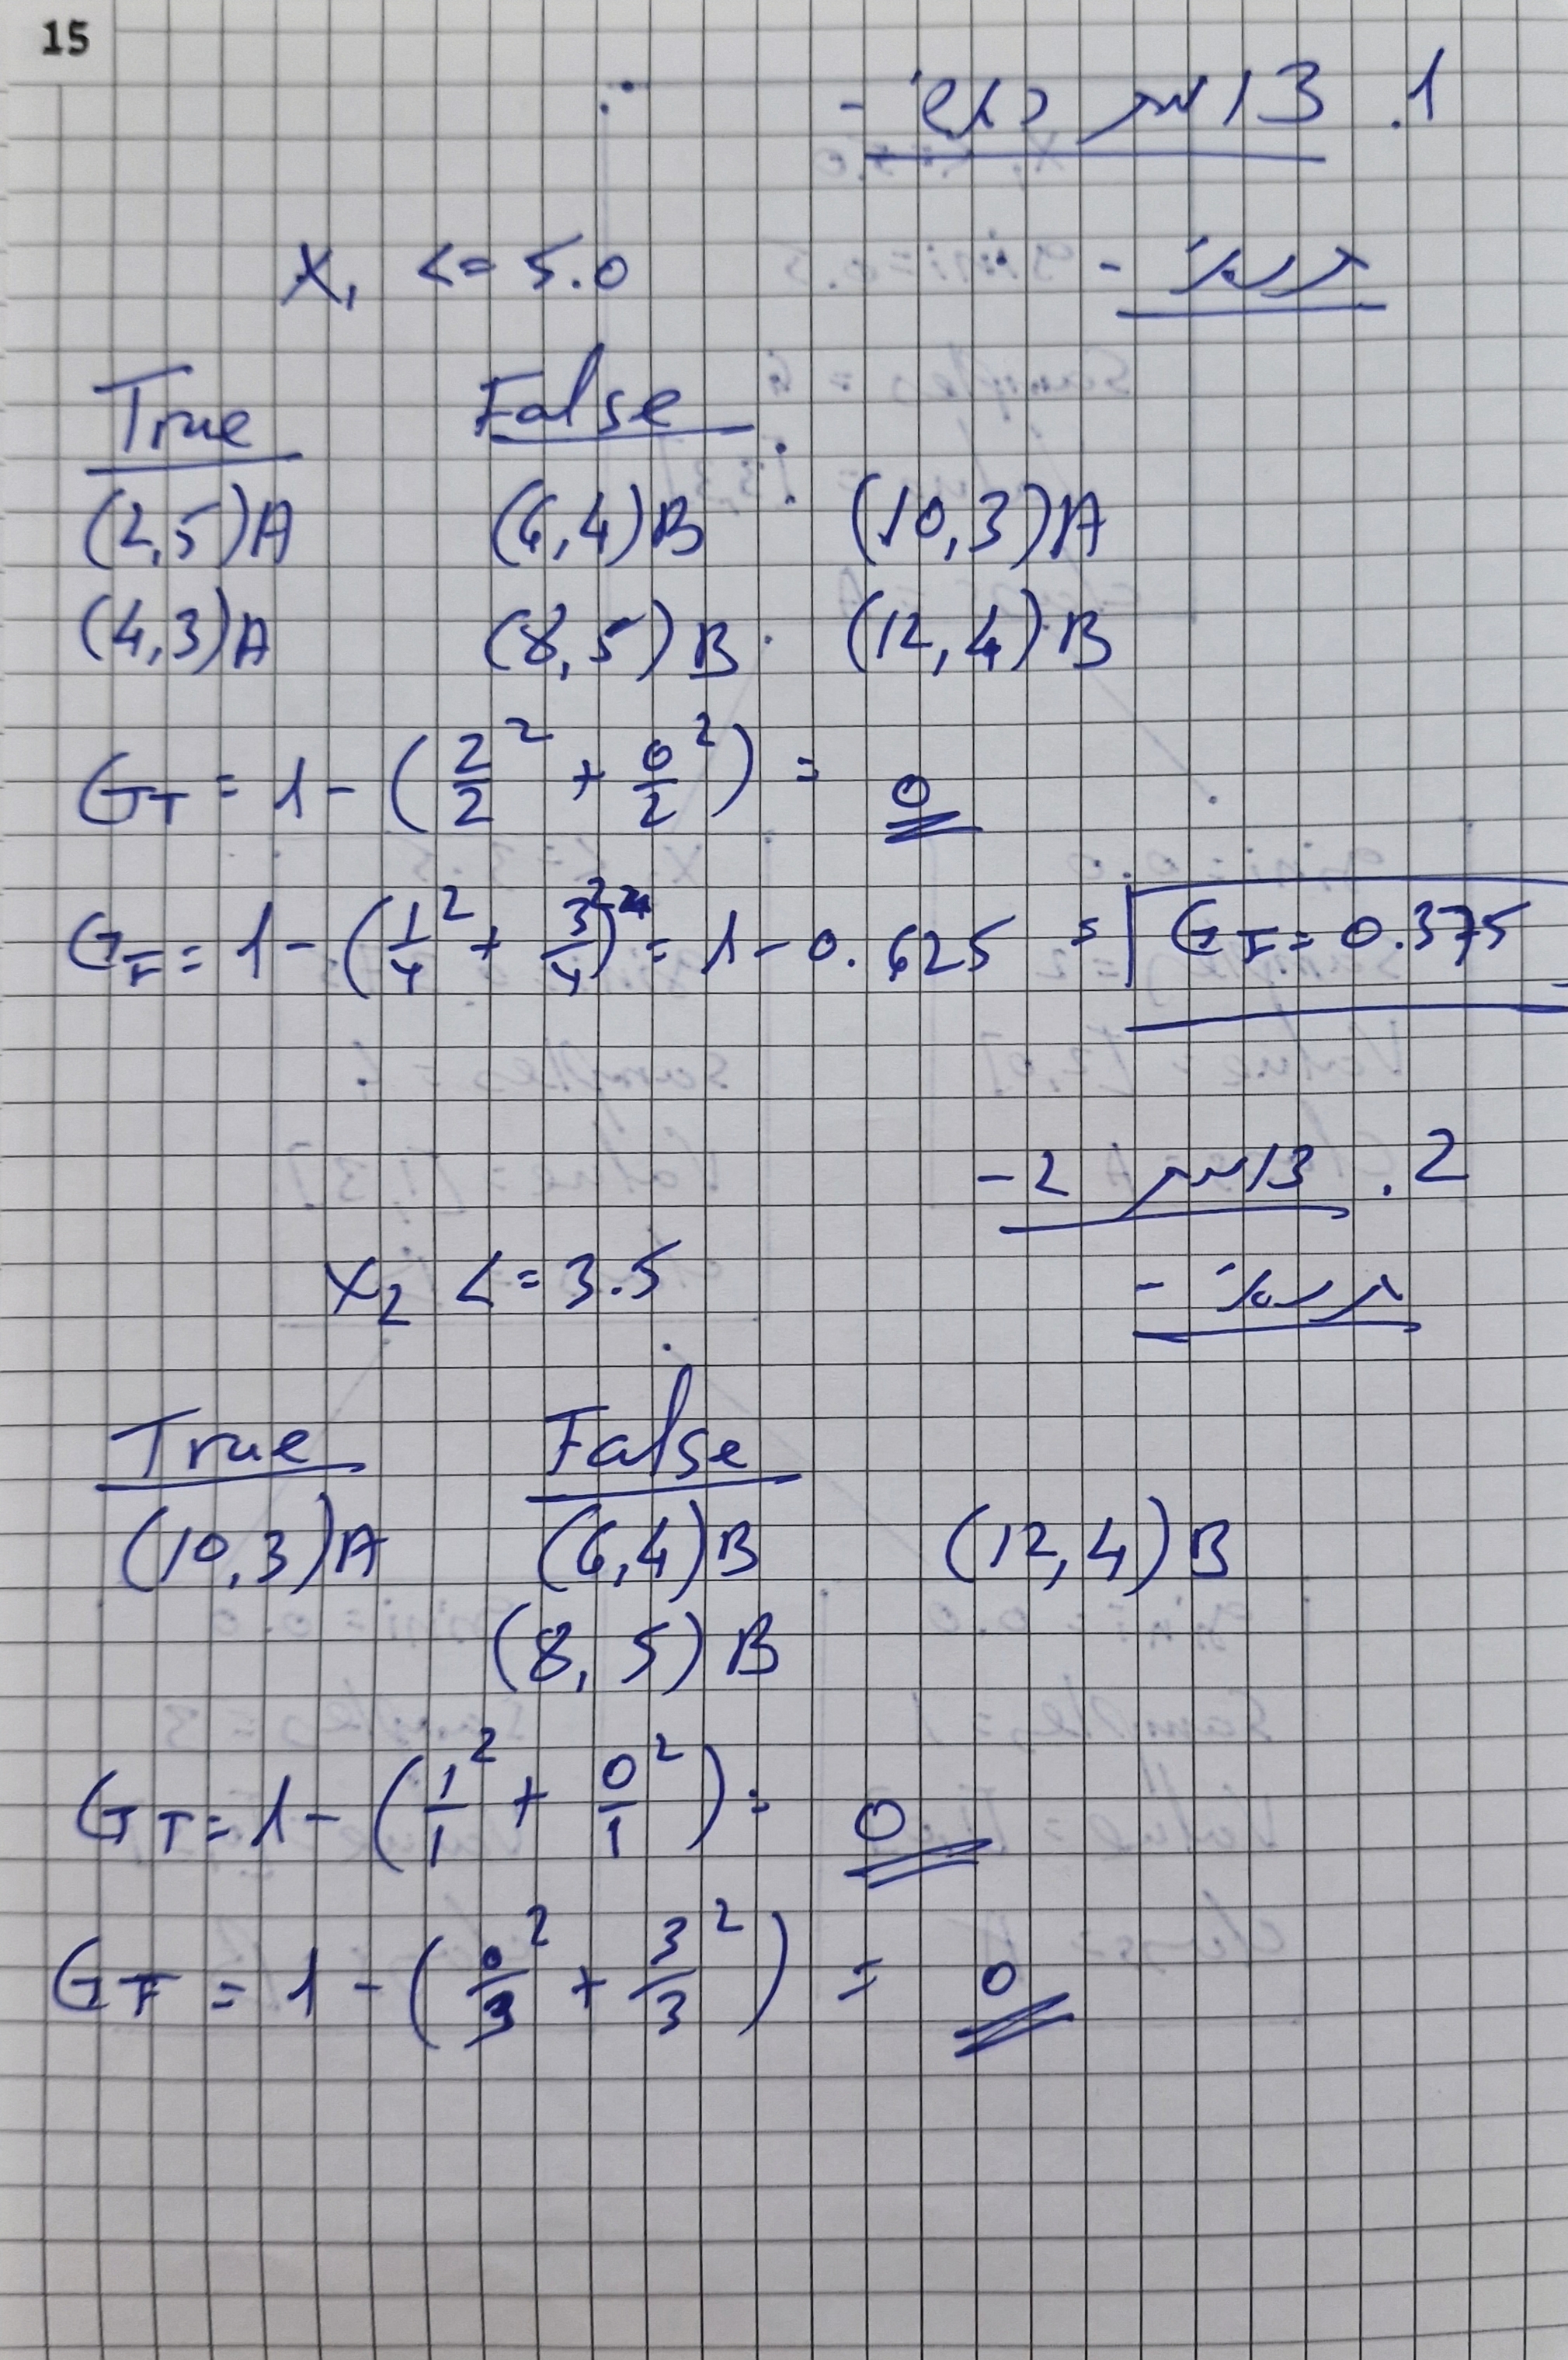 15
1. צומת בסיס -
תנאי - X₁ <= 5.0
True False
(2,5)A (6,4)B (10,3)A
(4,3)A (8,5)B (12,4)B
G_T = 1 - (2/2² + 0/2²) = 0
G_F = 1 - (1/4² + 3/4)² = 1 - 0.625 = G_F = 0.375
2. צומת 2 -
תנאי - X₂ <= 3.5
True False
(10,3)A (6,4)B (12,4)B
(8,5)B
G_T = 1 - (1/1² + 0/1²) = 0
G_F = 1 - (0/3² + 3/3²) = 0